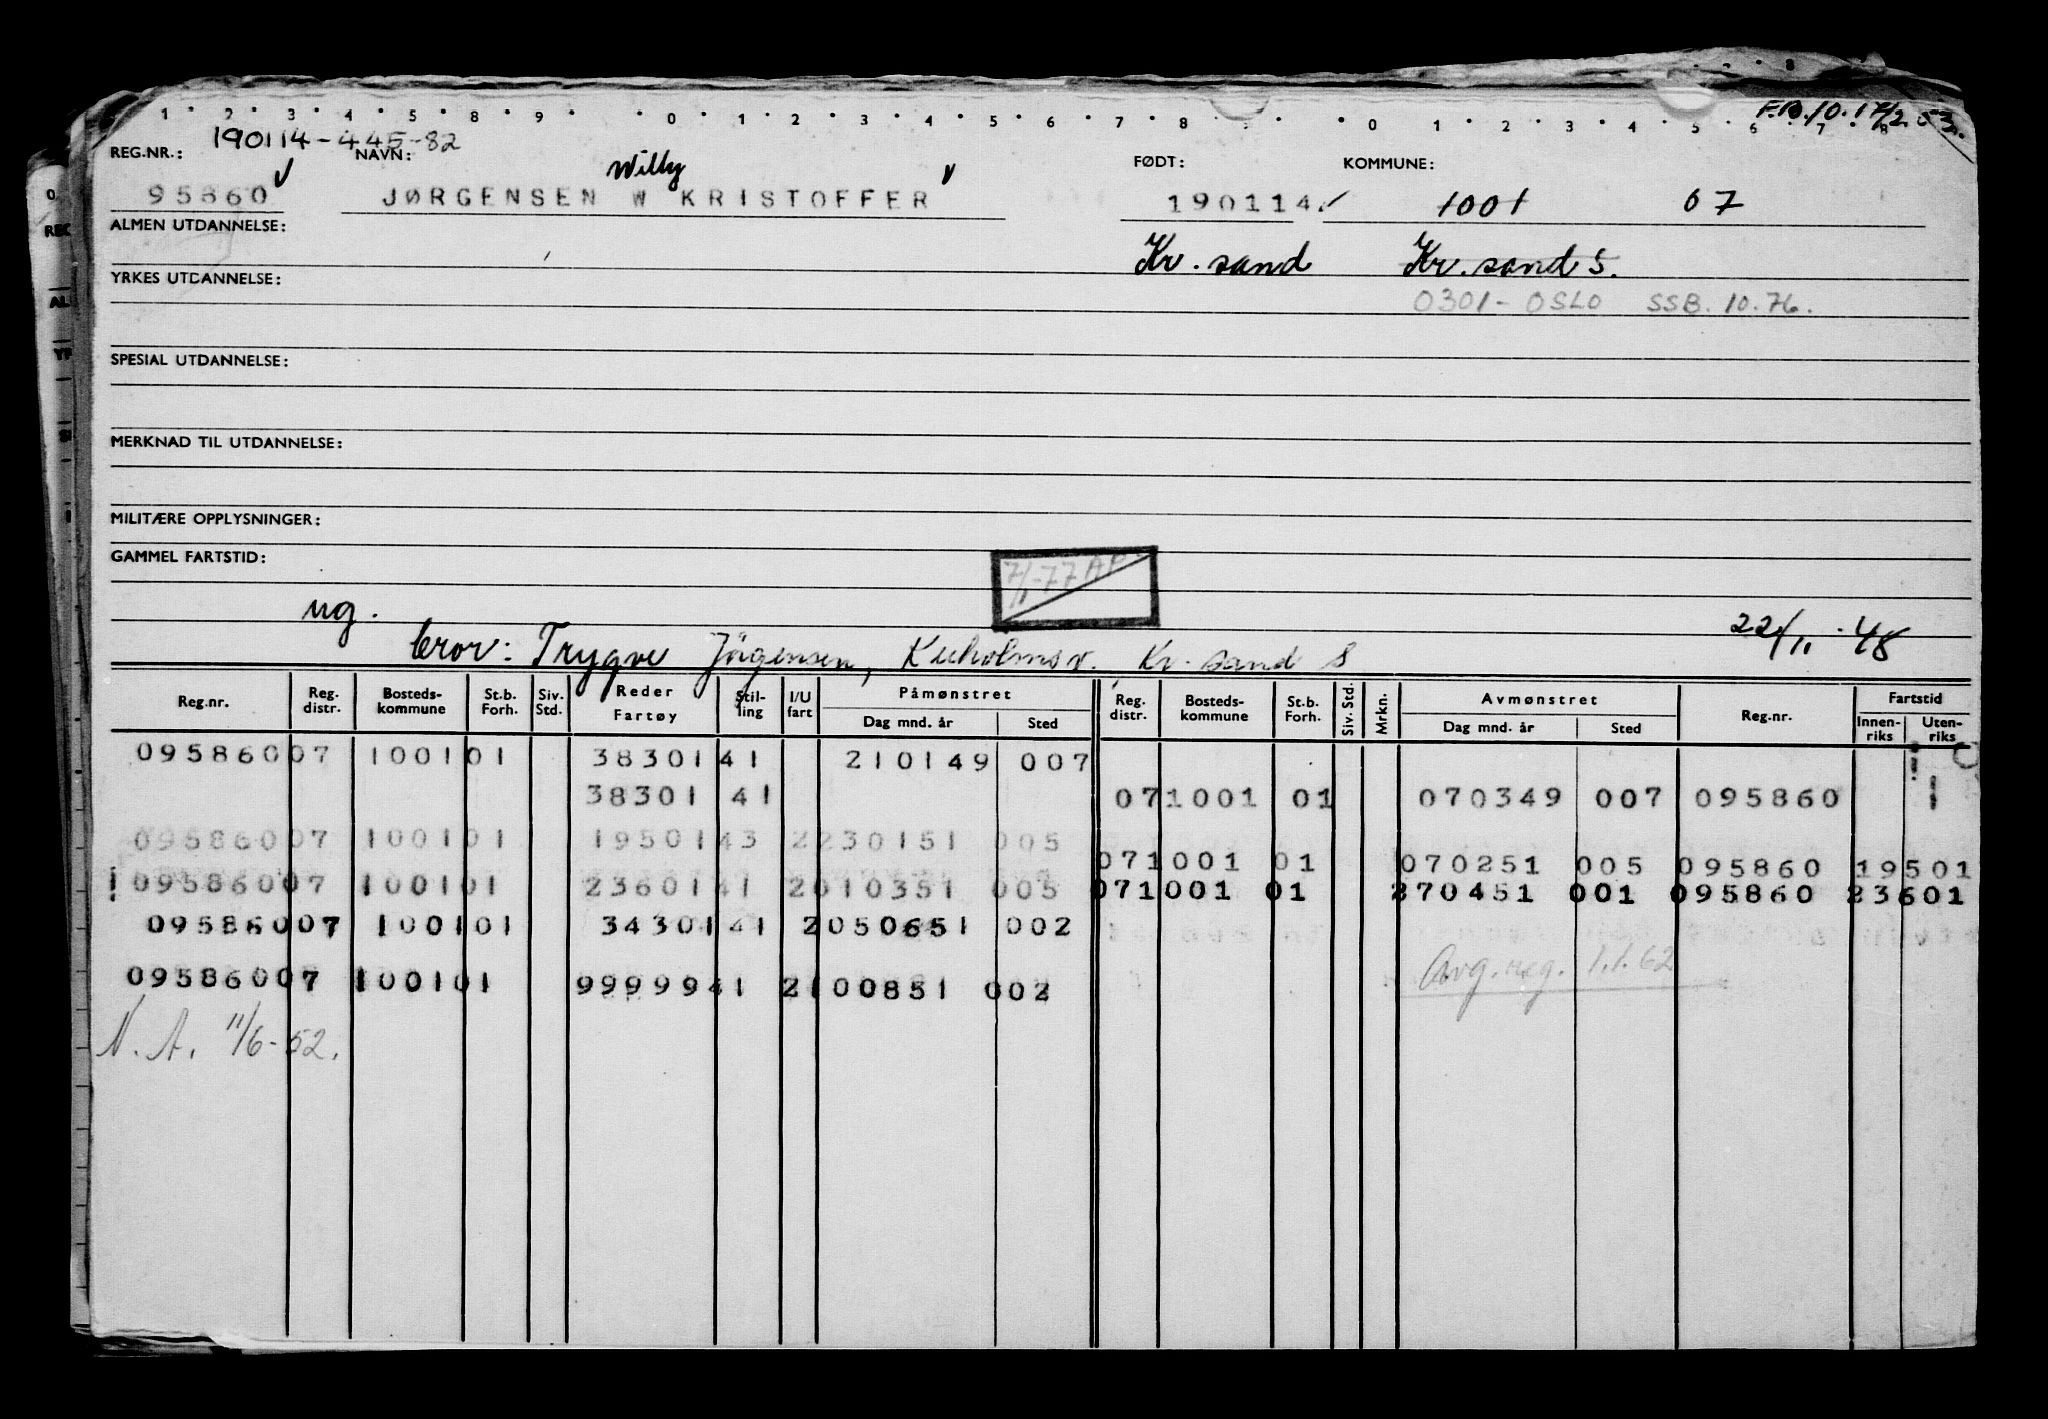 1 2 3 4 5 8 9 0 1 2 3 4 5 6 7 8 0 1 2 3 4 5 6 7 8
190114-445-82
REG.NR.: NAVN: Willy FØDT: KOMMUNE:
95860 JØRGENSEN W KRISTOFFER 190114 1001 07
ALMEN UTDANNELSE: Kr. sand Kr. sand S.
YRKES UTDANNELSE:
0301 - OSLO SSB. 10.76.
SPESIAL UTDANNELSE:
MERKNAD TIL UTDANNELSE:
MILITÆRE OPPLYSNINGER:
GAMMEL FARTSTID:
7/1-77 AP
ug. 22/11-48
bror: Trygve Jörgensen, Kr. sand S
Reg.nr. Reg. distr. Bosteds-kommune St.b. Forh. Siv. Std. Reder Fartøy Stil-ling I/U fart Påmønstret Dag mnd. år Sted Reg. distr. Bosteds-kommune St.b. Forh. Siv. Std. Mrkn. Avmønstret Dag mnd. år Sted Reg.nr. Fartstid Innen-riks Uten-riks
095860 07 1001 01 38301 41 210149 007
38301 41 07 1001 01 070349 007 095860 1
095860 07 1001 01 19501 43 2 230151 005
07 1001 01 070251 005 095860 19501
095860 07 1001 01 23601 41 2 010351 005 07 1001 01 270451 001 095860 23601
095860 07 1001 01 34301 41 2 050651 002
Avg. reg. 1.1.62
095860 07 1001 01 99999 41 2 100851 002
N. A. 11/6-52.